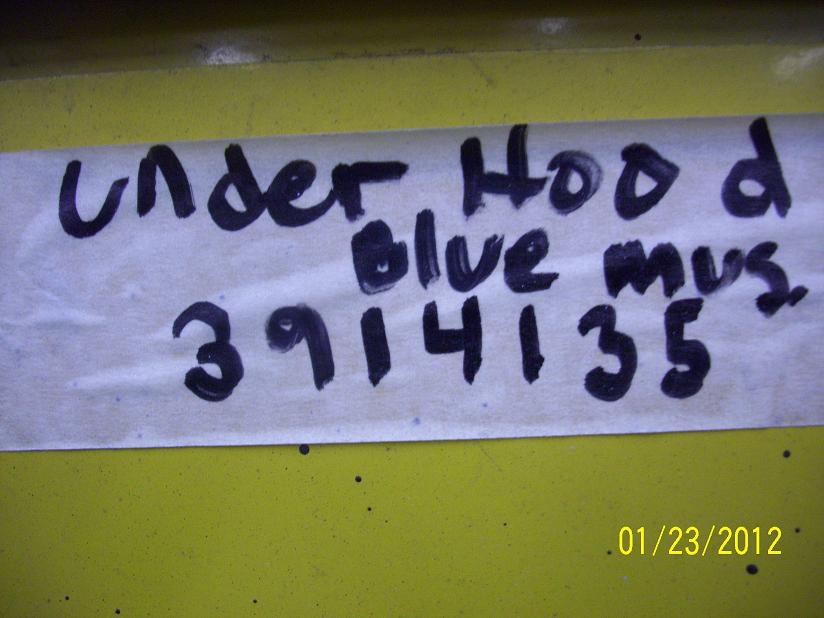 under Hood
Blue mus.
3914135
01/23/2012